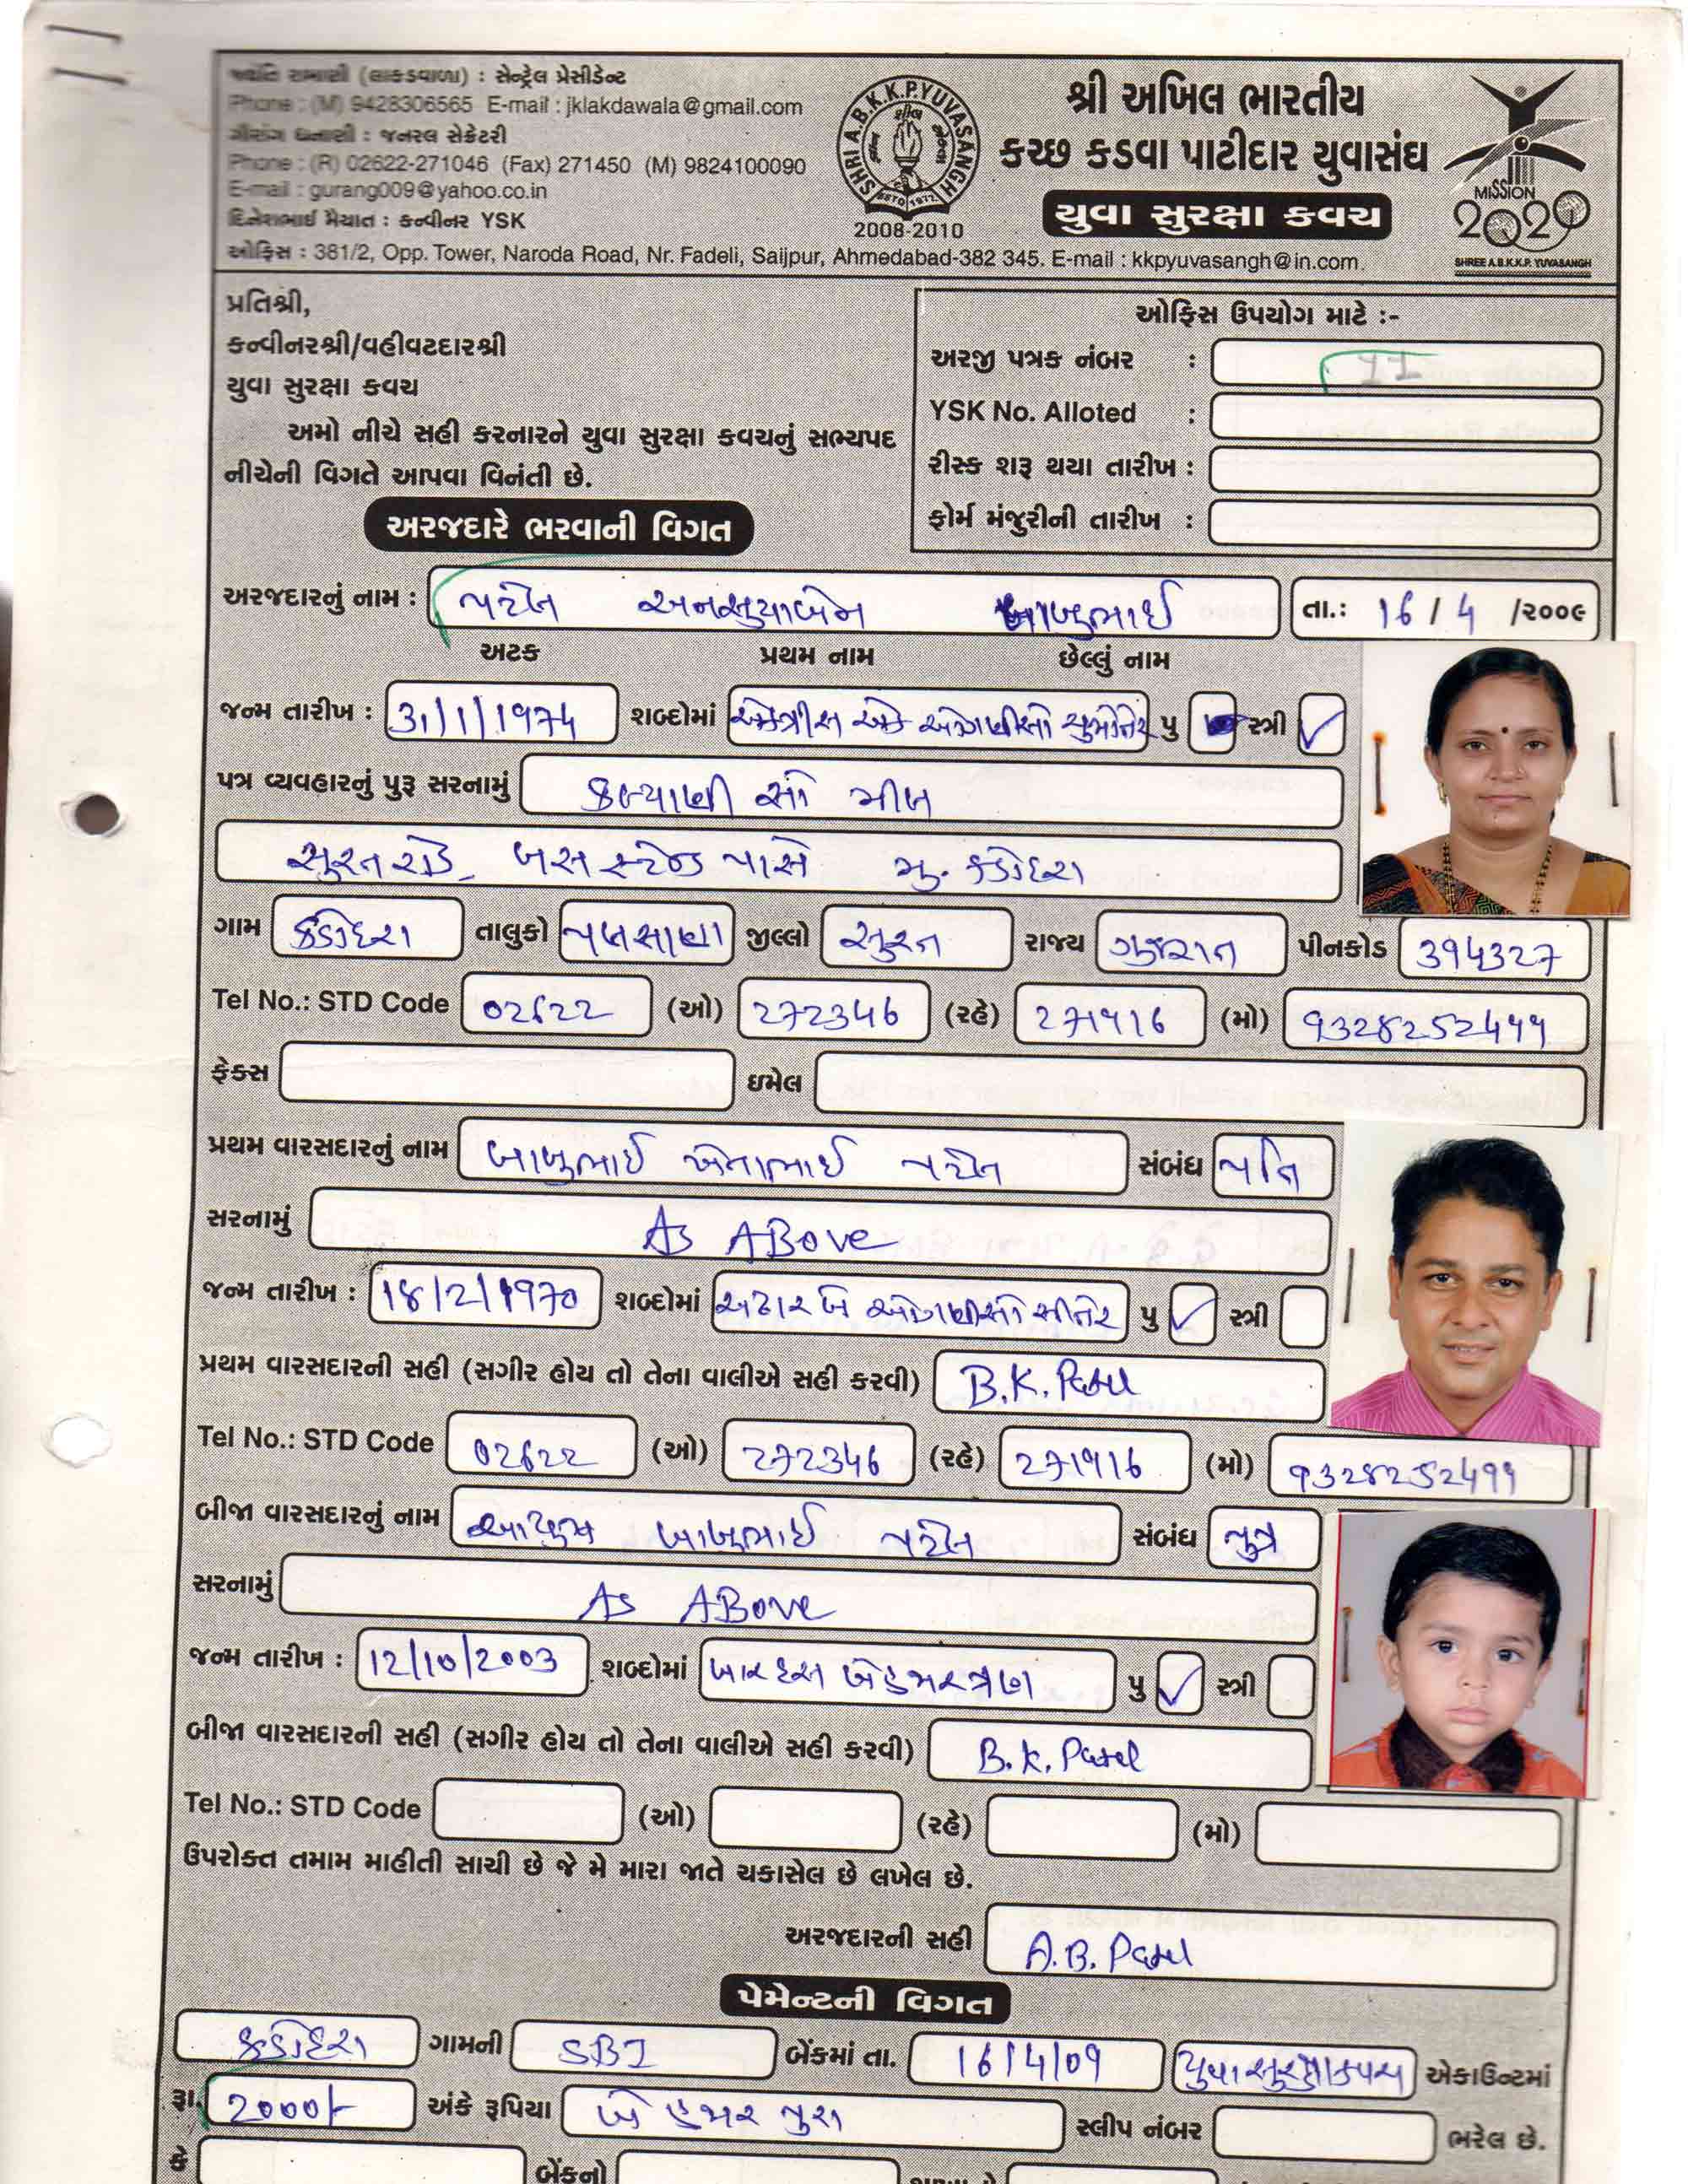 જયંતિ રામાણી (લાકડાવાળા) : સેન્ટ્રલ પ્રેસીડેન્ટ
Phone : (M) 9428306565 E-mail : jklakdawala@gmail.com
ગૌરાંગ ધનાણી : જનરલ સેક્રેટરી
Phone : (R) 02622-271046 (Fax) 271450 (M) 9824100090
E-mail : gurang009@yahoo.co.in
દિનેશભાઈ મૈયાત : કન્વીનર YSK
SHRI A.B.K.K.P. YUVASANGH
ESTD 1972
2008-2010
શ્રી અખિલ ભારતીય
કચ્છ કડવા પાટીદાર યુવાસંઘ
યુવા સુરક્ષા કવચ
MISSION
2020
SHREE A.B.K.K.P. YUVASANGH
ઓફિસ : 381/2, Opp. Tower, Naroda Road, Nr. Fadeli, Saijpur, Ahmedabad-382 345. E-mail : kkpyuvasangh@in.com.
પ્રતિશ્રી,
કન્વીનરશ્રી/વહીવટદારશ્રી
યુવા સુરક્ષા કવચ
અમો નીચે સહી કરનારને યુવા સુરક્ષા કવચનું સભ્યપદ
નીચેની વિગતે આપવા વિનંતી છે.
ઓફિસ ઉપયોગ માટે :-
અરજી પત્રક નંબર :
YSK No. Alloted :
રીસ્ક શરૂ થયા તારીખ :
ફોર્મ મંજુરીની તારીખ :
અરજદારે ભરવાની વિગત
અરજદારનું નામ : પટેલ અનસુયાબેન બાબુભાઈ તા.: 16 / 4 /૨૦૦૯
અટક પ્રથમ નામ છેલ્લું નામ
જન્મ તારીખ : 31/1/1974 શબ્દોમાં એકત્રીસ એક ઓગણીસો ચુમોતેર પુ સ્ત્રી ✓
પત્ર વ્યવહારનું પુરૂ સરનામું કલ્યાણી સો મીલ
સુરત રોડ બસ સ્ટેન્ડ પાસે મુ. કડોદરા
ગામ કડોદરા તાલુકો પલસાણા જીલ્લો સુરત રાજ્ય ગુજરાત પીનકોડ 394327
Tel No.: STD Code 02622 (ઓ) 272346 (રહે) 271916 (મો)
ફેક્સ ઇમેલ
પ્રથમ વારસદારનું નામ બાબુભાઈ ખેતાભાઈ પટેલ સંબંધ પતિ
સરનામું As ABove
જન્મ તારીખ : 18/2/1970 શબ્દોમાં અઢાર બે ઓગણીસો સીતેર પુ ✓ સ્ત્રી
પ્રથમ વારસદારની સહી (સગીર હોય તો તેના વાલીએ સહી કરવી) B.K. Patel
Tel No.: STD Code 02622 (ઓ) 272346 (રહે) 271916 (મો)
બીજા વારસદારનું નામ આયુષ બાબુભાઈ પટેલ સંબંધ પુત્ર
સરનામું As ABove
જન્મ તારીખ : 12/10/2003 શબ્દોમાં બાર દસ બેહજાર ત્રણ પુ ✓ સ્ત્રી
બીજા વારસદારની સહી (સગીર હોય તો તેના વાલીએ સહી કરવી) B.K. Patel
Tel No.: STD Code (ઓ) (રહે) (મો)
ઉપરોક્ત તમામ માહીતી સાચી છે જે મે મારા જાતે ચકાસેલ છે લખેલ છે.
અરજદારની સહી A.B. Patel
પેમેન્ટની વિગત
કડોદરા ગામની SBI બેંકમાં તા. 16/4/09 યુવા સુરક્ષા કવચ એકાઉન્ટમાં
રૂા. 2000/- અંકે રૂપિયા બે હજાર પુરા સ્લીપ નંબર ભરેલ છે.
કે બેંકનો